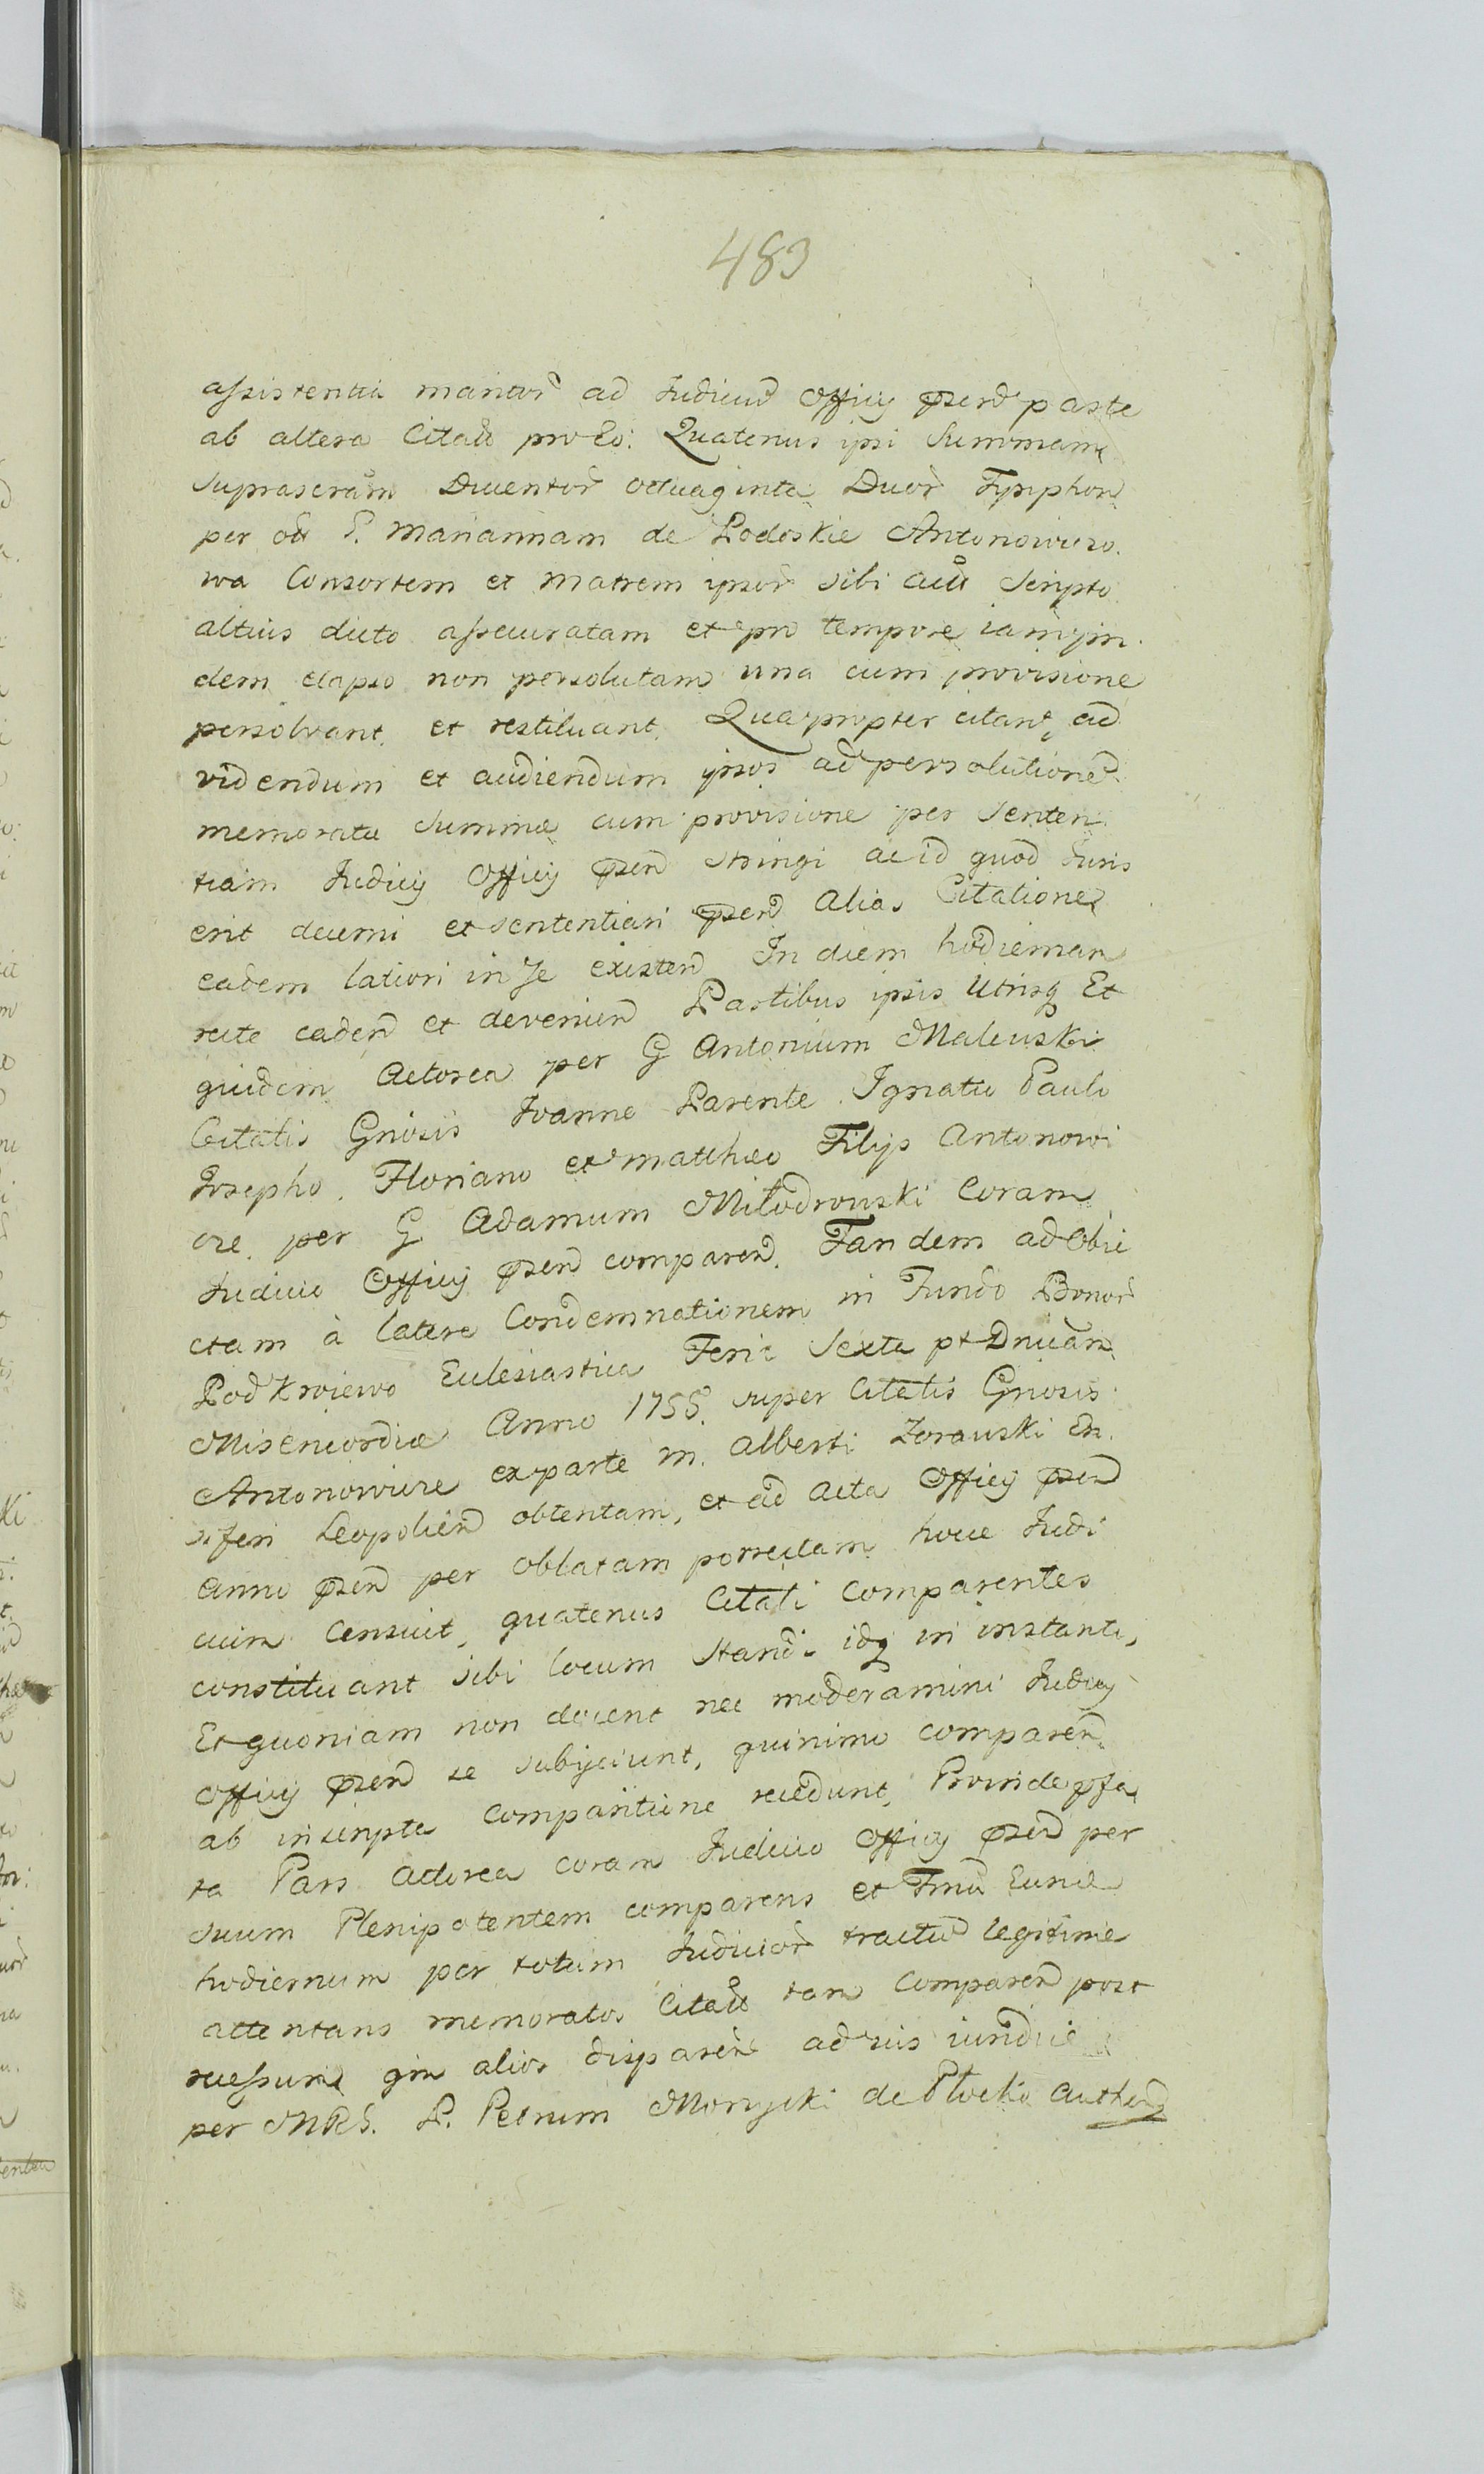 483
assistentia maritor ad Iudiciu Officy pseñ parte
ab altera Citatt pro Eo: Quatenus ipsi Summam
suprascram Ducentor octuaginta Duor Tynphon
per ott P. Mariannam de Podoskie Antonowiczo
wa Consortem et Matrem ipsor sibi Actt Scripto
altius dicto assecuratam et pro tempore iam pri
dem elapso non persolutam una cum provisione
persolvant et restituant. Quapropter citant ad
videndum et audiendum ipsos ad persolutione
memoratæ Summæ cum provisione per Senten
tiam Iudicy Officy pseñ stringi ac id quod Iuris
erit decerni et sententiari pseñ alias Citatione
eadem latiori in se existeñ In diem hodiernam
recte cadeñ et devenieñ Partibus ipsis Utrisq Et
quidem Actorea per G Antonium Malewski
Citatis Gnosis Ioanne Parente Ignatio Paulo
Iosepho. Floriano et Matthæo Filijs Antonowi
cze. per G Adamum Miłodrowski Coram
Iudicio Officy pseñ compareñ. Tandem ad Obie
ctam à latere Condemnationem in Fundo Bonor
Podkrviewo Ecclesiastica Feria Sexta pt Dnicam
Misericordiæ Anno 1758. super Citatis Gnosis
Antonowicze ex parte M. Alberti Zorawski En
siferi Leopolieñ obtentam, et ad Acta Officy pseñ
Anno pseñ per oblatam porrectam hocce Iudi
cium Censuit, quatenus Citati Comparentes
constituant sibi locum standi idq in instanti,
Et quoniam non docent nec moderamini Iudicy
Officy pseñ se subijciunt, quinimo compareñ
ab inscripta Comparitione recedunt, Proinde pfa
ta Pars Actorea coram Iudicio Officy pseñ per
suum Plenipotentem comparens et Tmū Eunde
hodiernum per totum Iudicior tractu legitime
attentans memoratos Citatt tan compareñ post
recessum qm alios dispareñ ad sus iuridice
per MRS. P. Petrum Morycki de Plocko authen